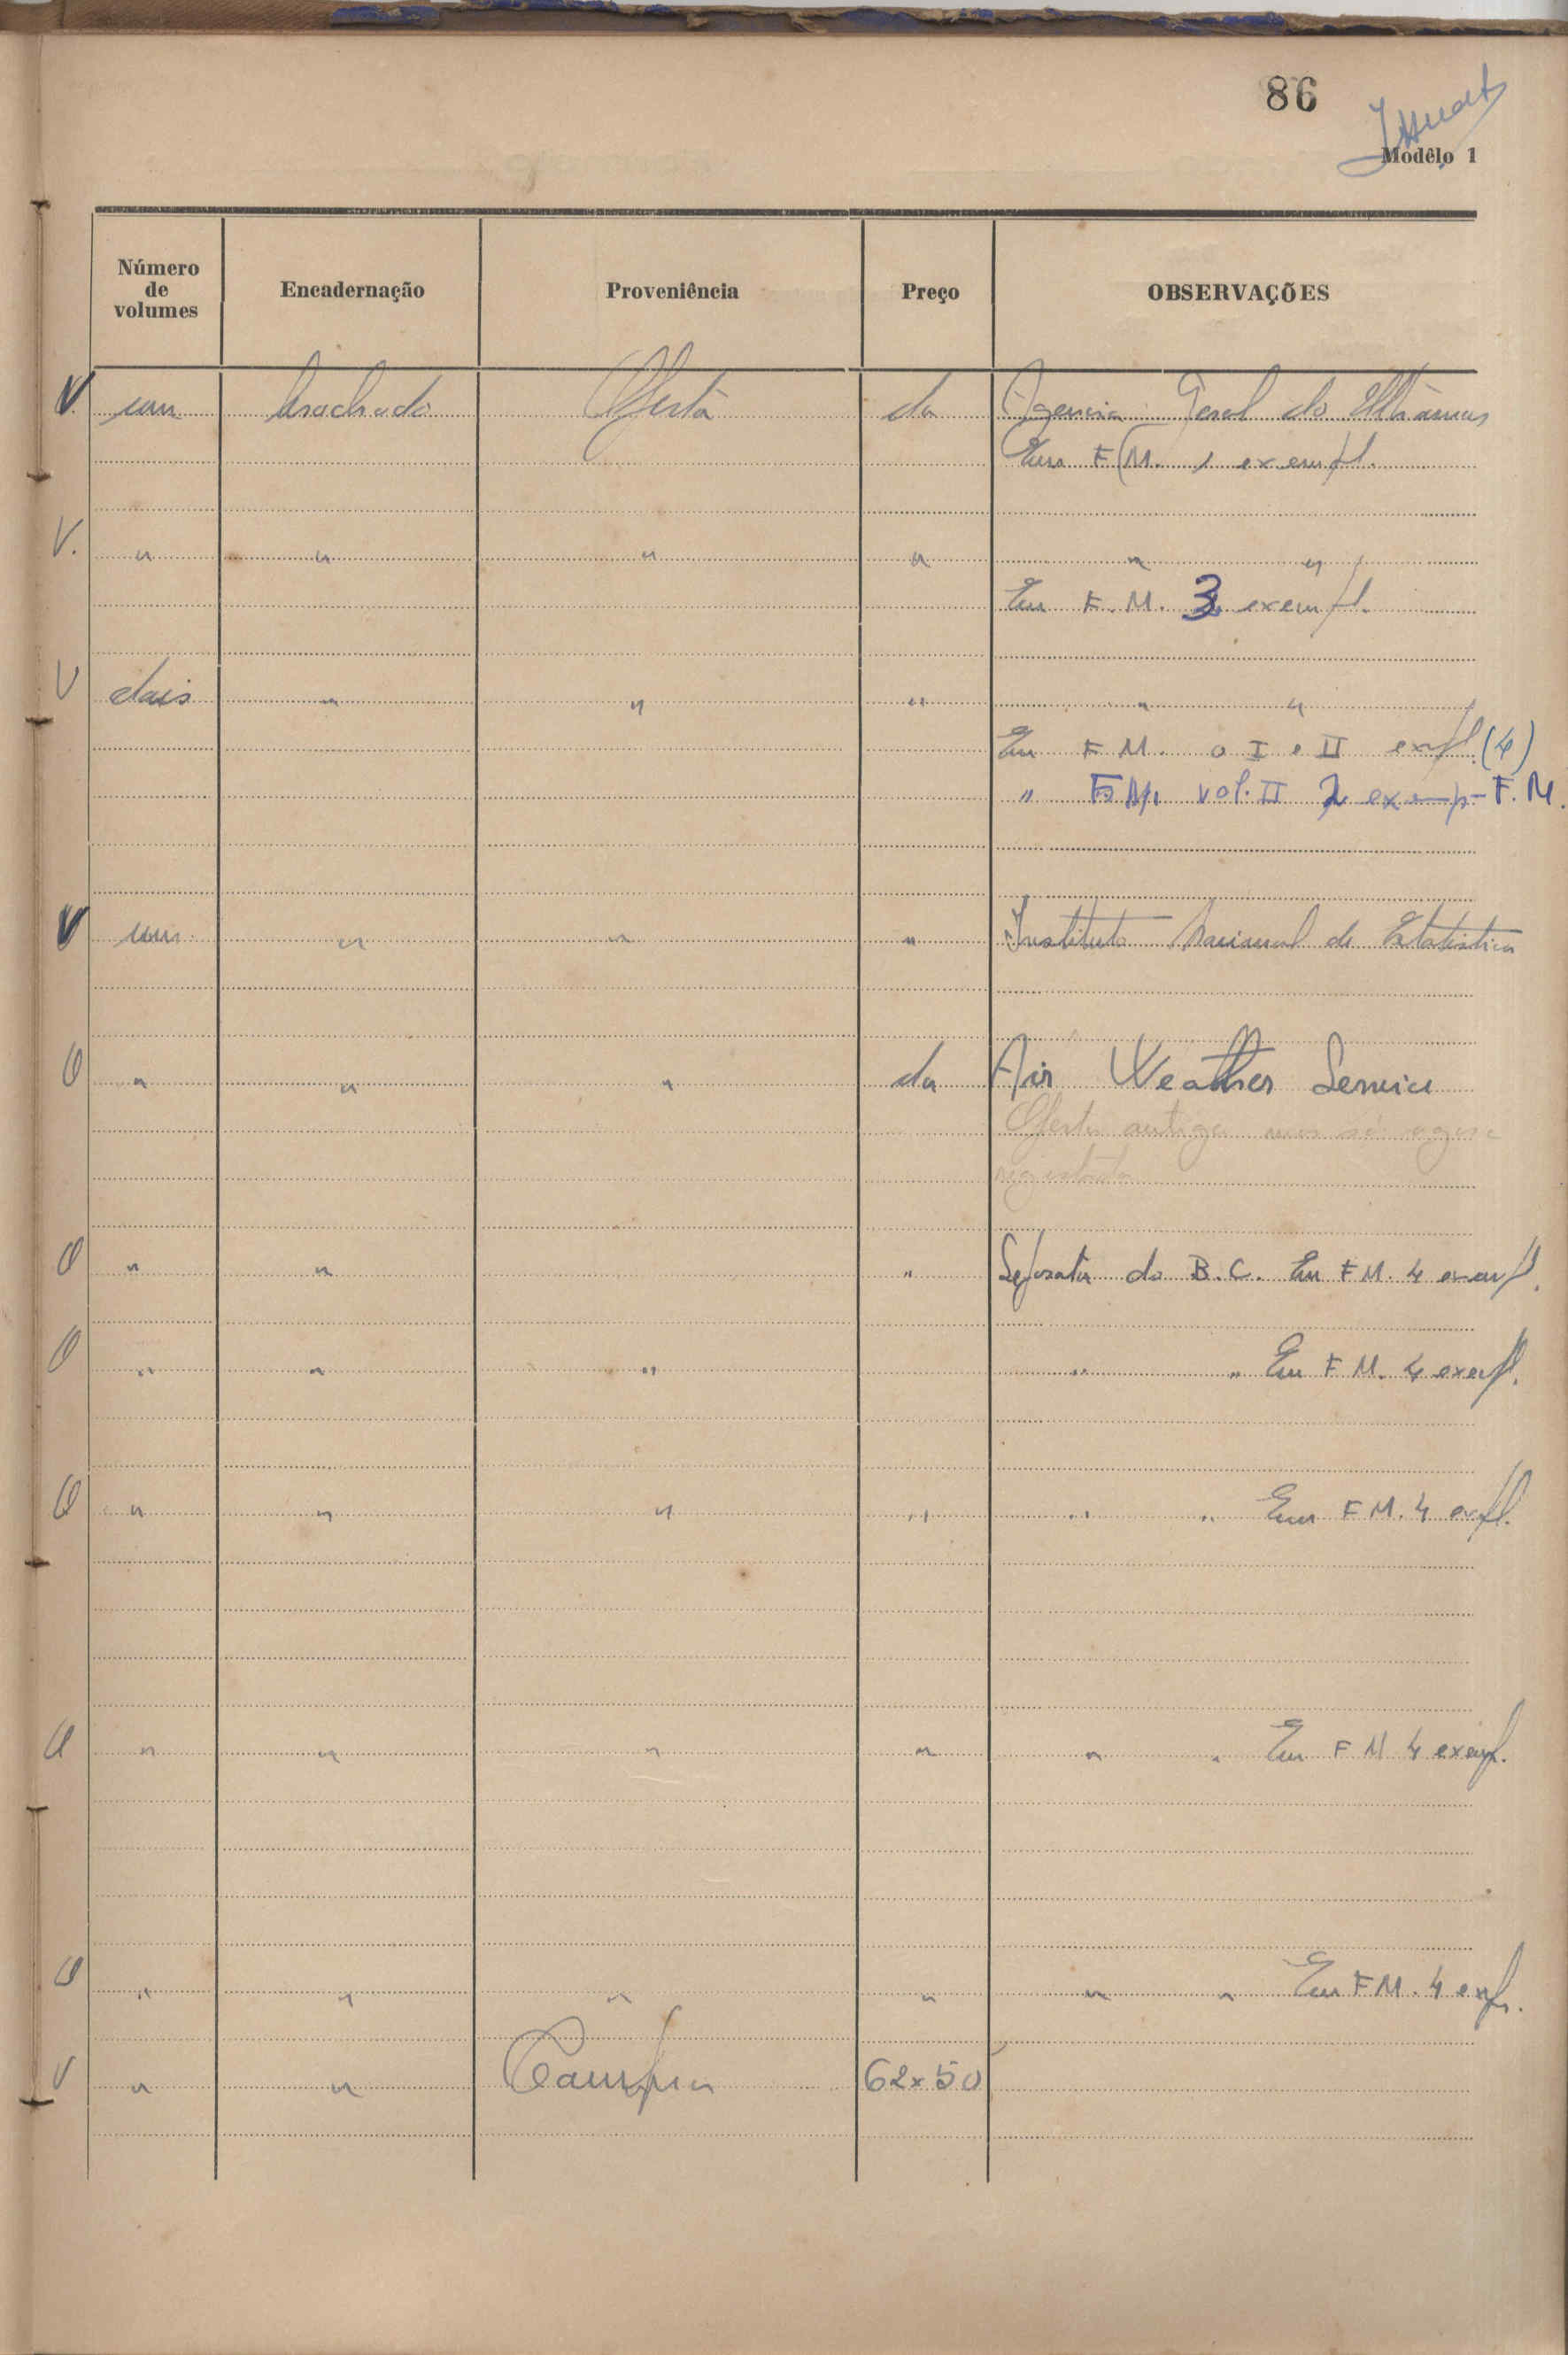 86
Modêlo 1
Número de volumes Encadernação Proveniência Preço OBSERVAÇÕES
V. um brochado Oferta da Agencia Geral do Ultramar
Em F.M. 1 exempl.
V. " " " " " "
Em F.M. 3 exempl.
V dois " " " " "
Em F.M. o I e II expl. (4)
" F.M. vol. II 2 exemp - F.M.
V um " " " Instituto Nacional de Estatistica
O " " " da Air Weather Service
Oferta antiga mas só agora
registada
O " " " Separata do B.C. Em F.M. 4 exempl.
O " " " " " Em F.M. 4 exempl.
O " " " " " " Em F.M. 4 expl.
O " " " " " " Em F M 4 exempl.
O " " " " " " Em F.M. 4 expl.
V " " Compra 62x50